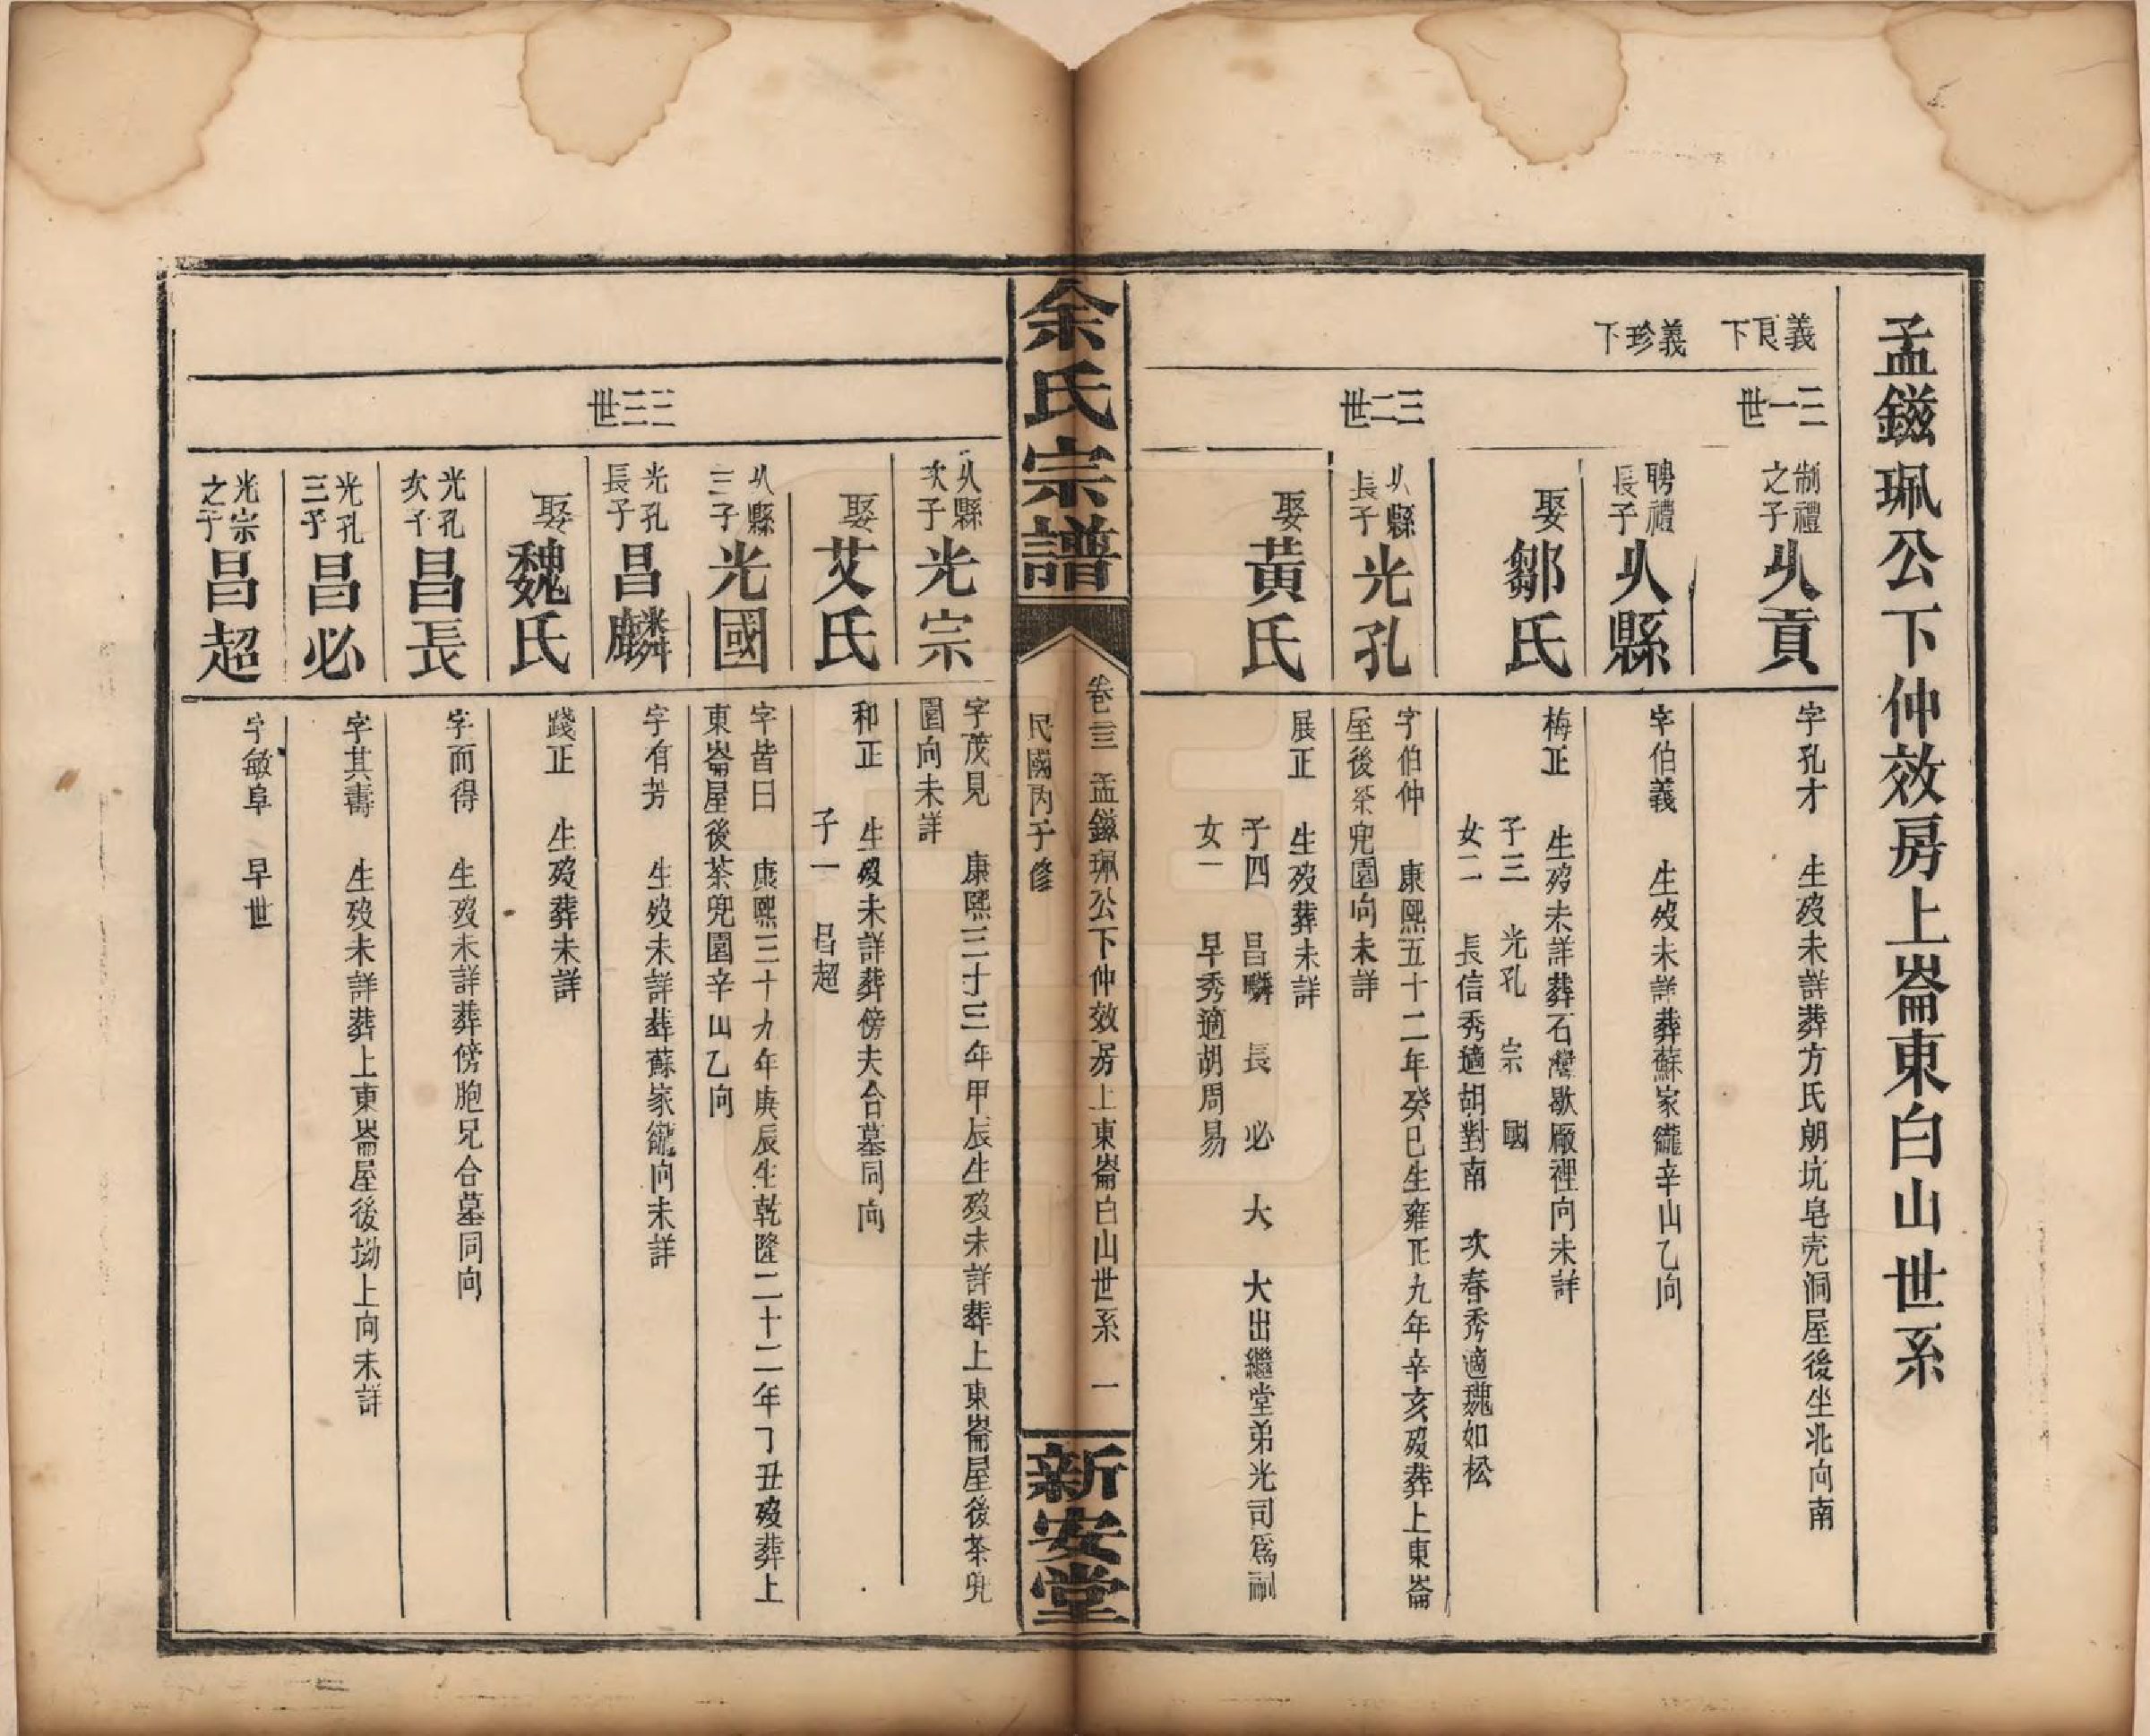 孟鎡珮公下仲效房上崙東白山世系
義良下
義珍下
三一世
制禮之子 㕥貢
字孔才 生歿未詳葬方氏朗坑皂壳洞屋後坐北向南
聘禮長子 㕥縣
字伯義 生歿未詳葬蘇家巃辛山乙向
娶 鄒氏
梅正 生歿未詳葬石灣歇廠裡向未詳
子三 光孔 宗 國
女二 長信秀適胡對南 次春秀適魏如松
三二世
㕥縣長子 光孔
字伯仲 康熙五十二年癸巳生雍正九年辛亥歿葬上東崙
屋後茶兜園向未詳
娶 黃氏
展正 生歿葬未詳
子四 昌麟 長 必 大 大出繼堂弟光司爲嗣
女一 早秀適胡周易
余氏宗譜
卷三 孟鎡珮公下仲效房上東崙白山世系 一
民國丙子修
新安堂
㕥縣次子 光宗
字茂見 康熙三十三年甲辰生歿未詳葬上東崙屋後茶兜
園向未詳
娶 艾氏
和正 生歿未詳葬傍夫合墓同向
子一 昌超
㕥縣三子 光國
字皆曰 康熙三十九年庚辰生乾隆二十二年丁丑歿葬上
東崙屋後茶兜園辛山乙向
三三世
光孔長子 昌麟
字有芳 生歿未詳葬蘇家巃向未詳
娶 魏氏
踐正 生歿葬未詳
光孔次子 昌長
字而得 生歿未詳葬傍胞兄合墓同向
光孔三子 昌必
字其壽 生歿未詳葬上東崙屋後坳上向未詳
光宗之子 昌超
字敏阜 早世